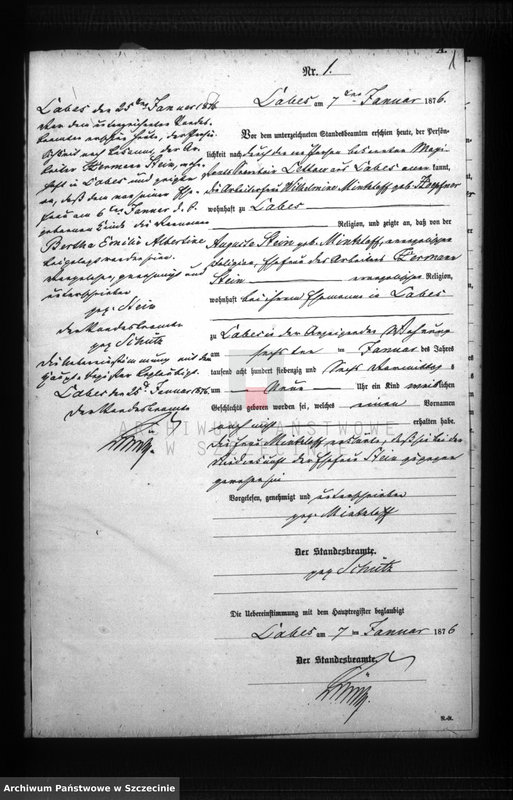 Nr. 1.
Labes am 7ten Januar 1876.
Vor dem unterzeichneten Standesbeamten erschien heute, der Persön-
lichkeit nach durch den
Lettow aus Labes kannt,
die Arbeiterfrau Wilhelmine Minkloff geb.
wohnhaft zu Labes
Religion, und zeigte an, daß von der
Auguste Stein geb. Minkloff, evangelischer
Religion, Ehefrau des Arbeiters Hermann
Stein evangelischer Religion,
wohnhaft bei ihrem Ehemanne in Labes
zu Labes in der Anzeigenden Wohnung
am sechsten Januar des Jahres
tausend acht hundert siebenzig und sechs Vormittags
um Neun Uhr ein Kind weiblichen
Geschlechts geboren worden sei, welches einen Vornamen
noch nicht erhalten habe.
Die Frau Minkloff erklärte, daß sie bei der
Niederkunft der Ehefrau Stein zugegen
gewesen sei
Vorgelesen, genehmigt und unterschrieben
gez. Minkloff
Der Standesbeamte.
gez. Schütz
Die Uebereinstimmung mit dem Hauptregister beglaubigt
Labes am 7 ten Januar 1876
Der Standesbeamte.
Schütz.
Labes den 25ten Januar 1876
Vor dem unterzeichneten Standes-
beamten erschien heute, der Persön-
lichkeit nach bekannt, der Ar-
beiter Hermann Stein, wohn-
haft in Labes und zeigte
an, daß dem von seiner Ehe-
frau am 6ten Januar d. J.
geborenen Kinde die Vornamen
Bertha Emilie Albertine
beigelegt worden sein.
Vorgelesen, genehmigt und
unterschrieben
gez. Stein
Der Standesbeamte
gez. Schütz
Die Uebereinstimmung mit dem
Haupt-Register beglaubigt.
Labes den 25. Januar 1876.
Der Standesbeamte
Schütz.
ARCHIWUM PAŃSTWOWE
W SZCZECINIE
Archiwum Państwowe w Szczecinie